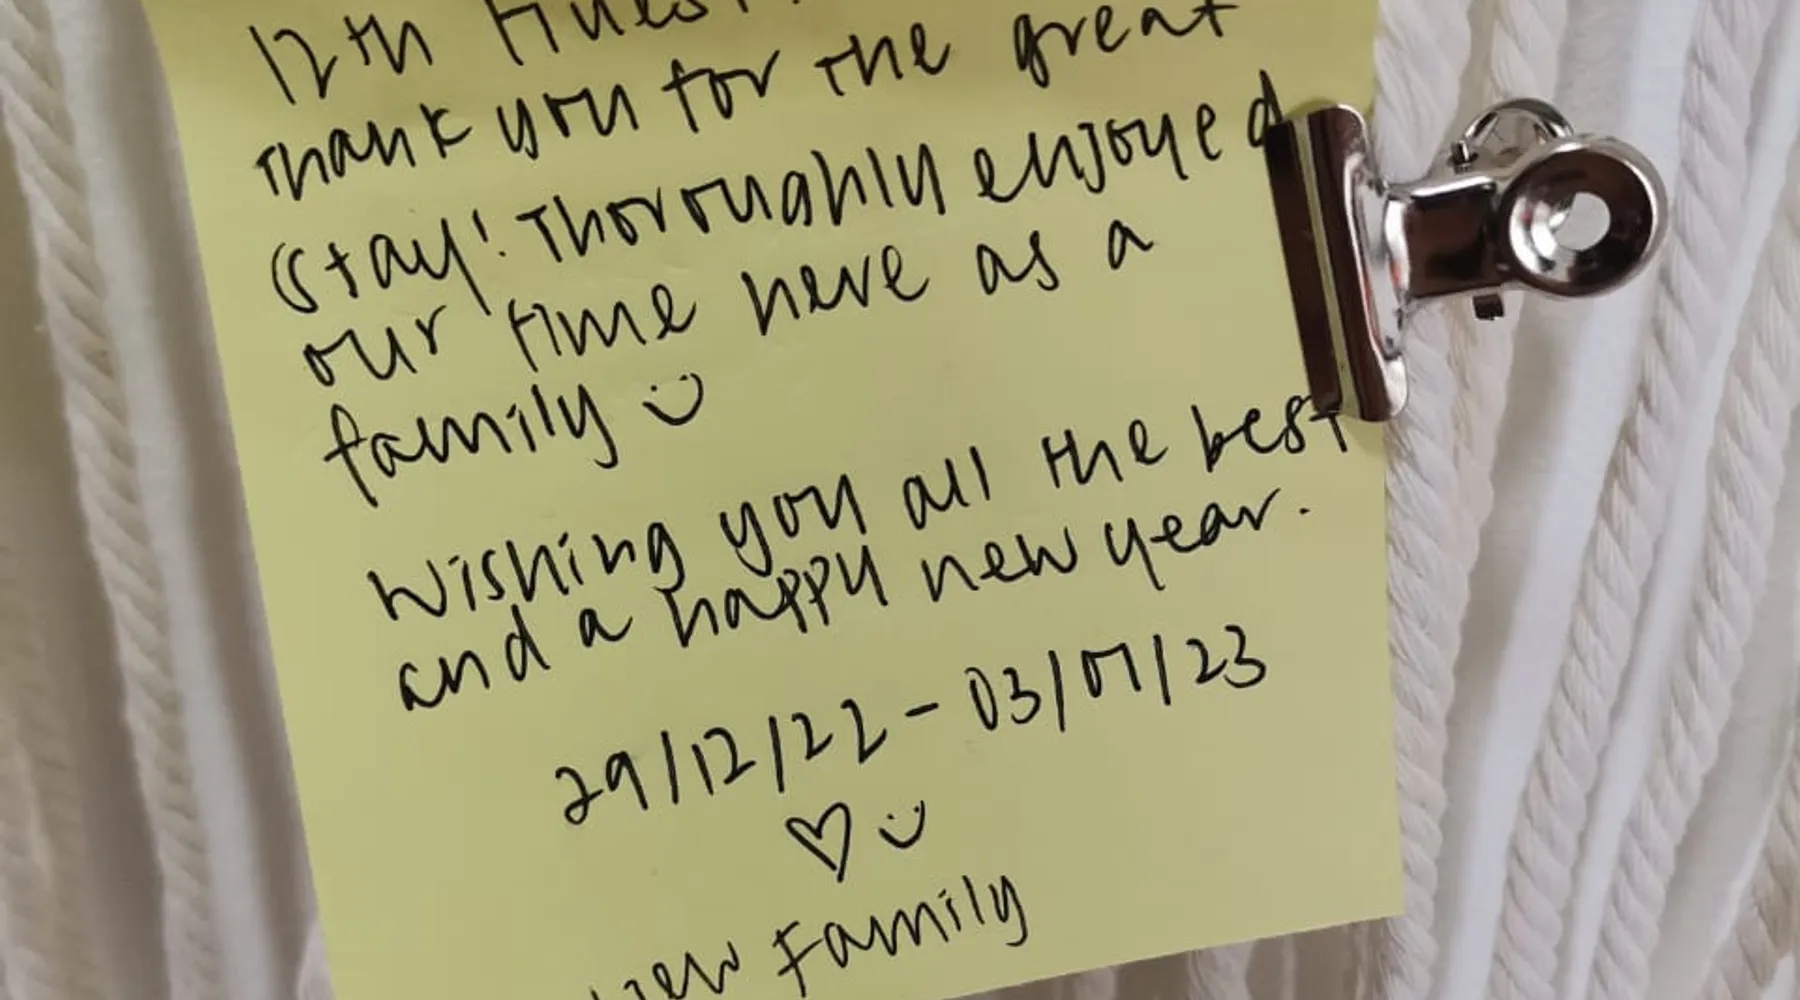 12th
thank you for the great
stay! Thoroughly enjoyed
our time here as a
family
Wishing you all the best
and a happy new year.
29/12/22 - 03/01/23
Family